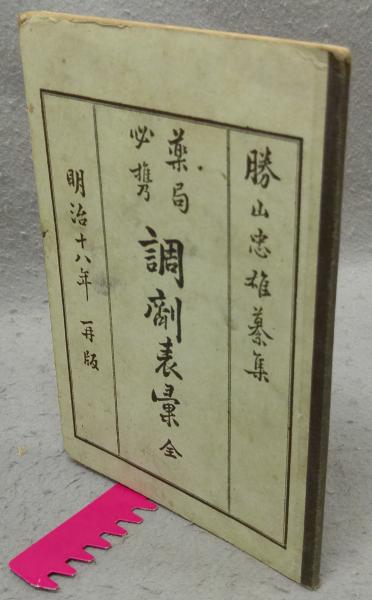 勝山忠雄纂集
薬局
必携
調劑表彙 全
明治十八年 再版